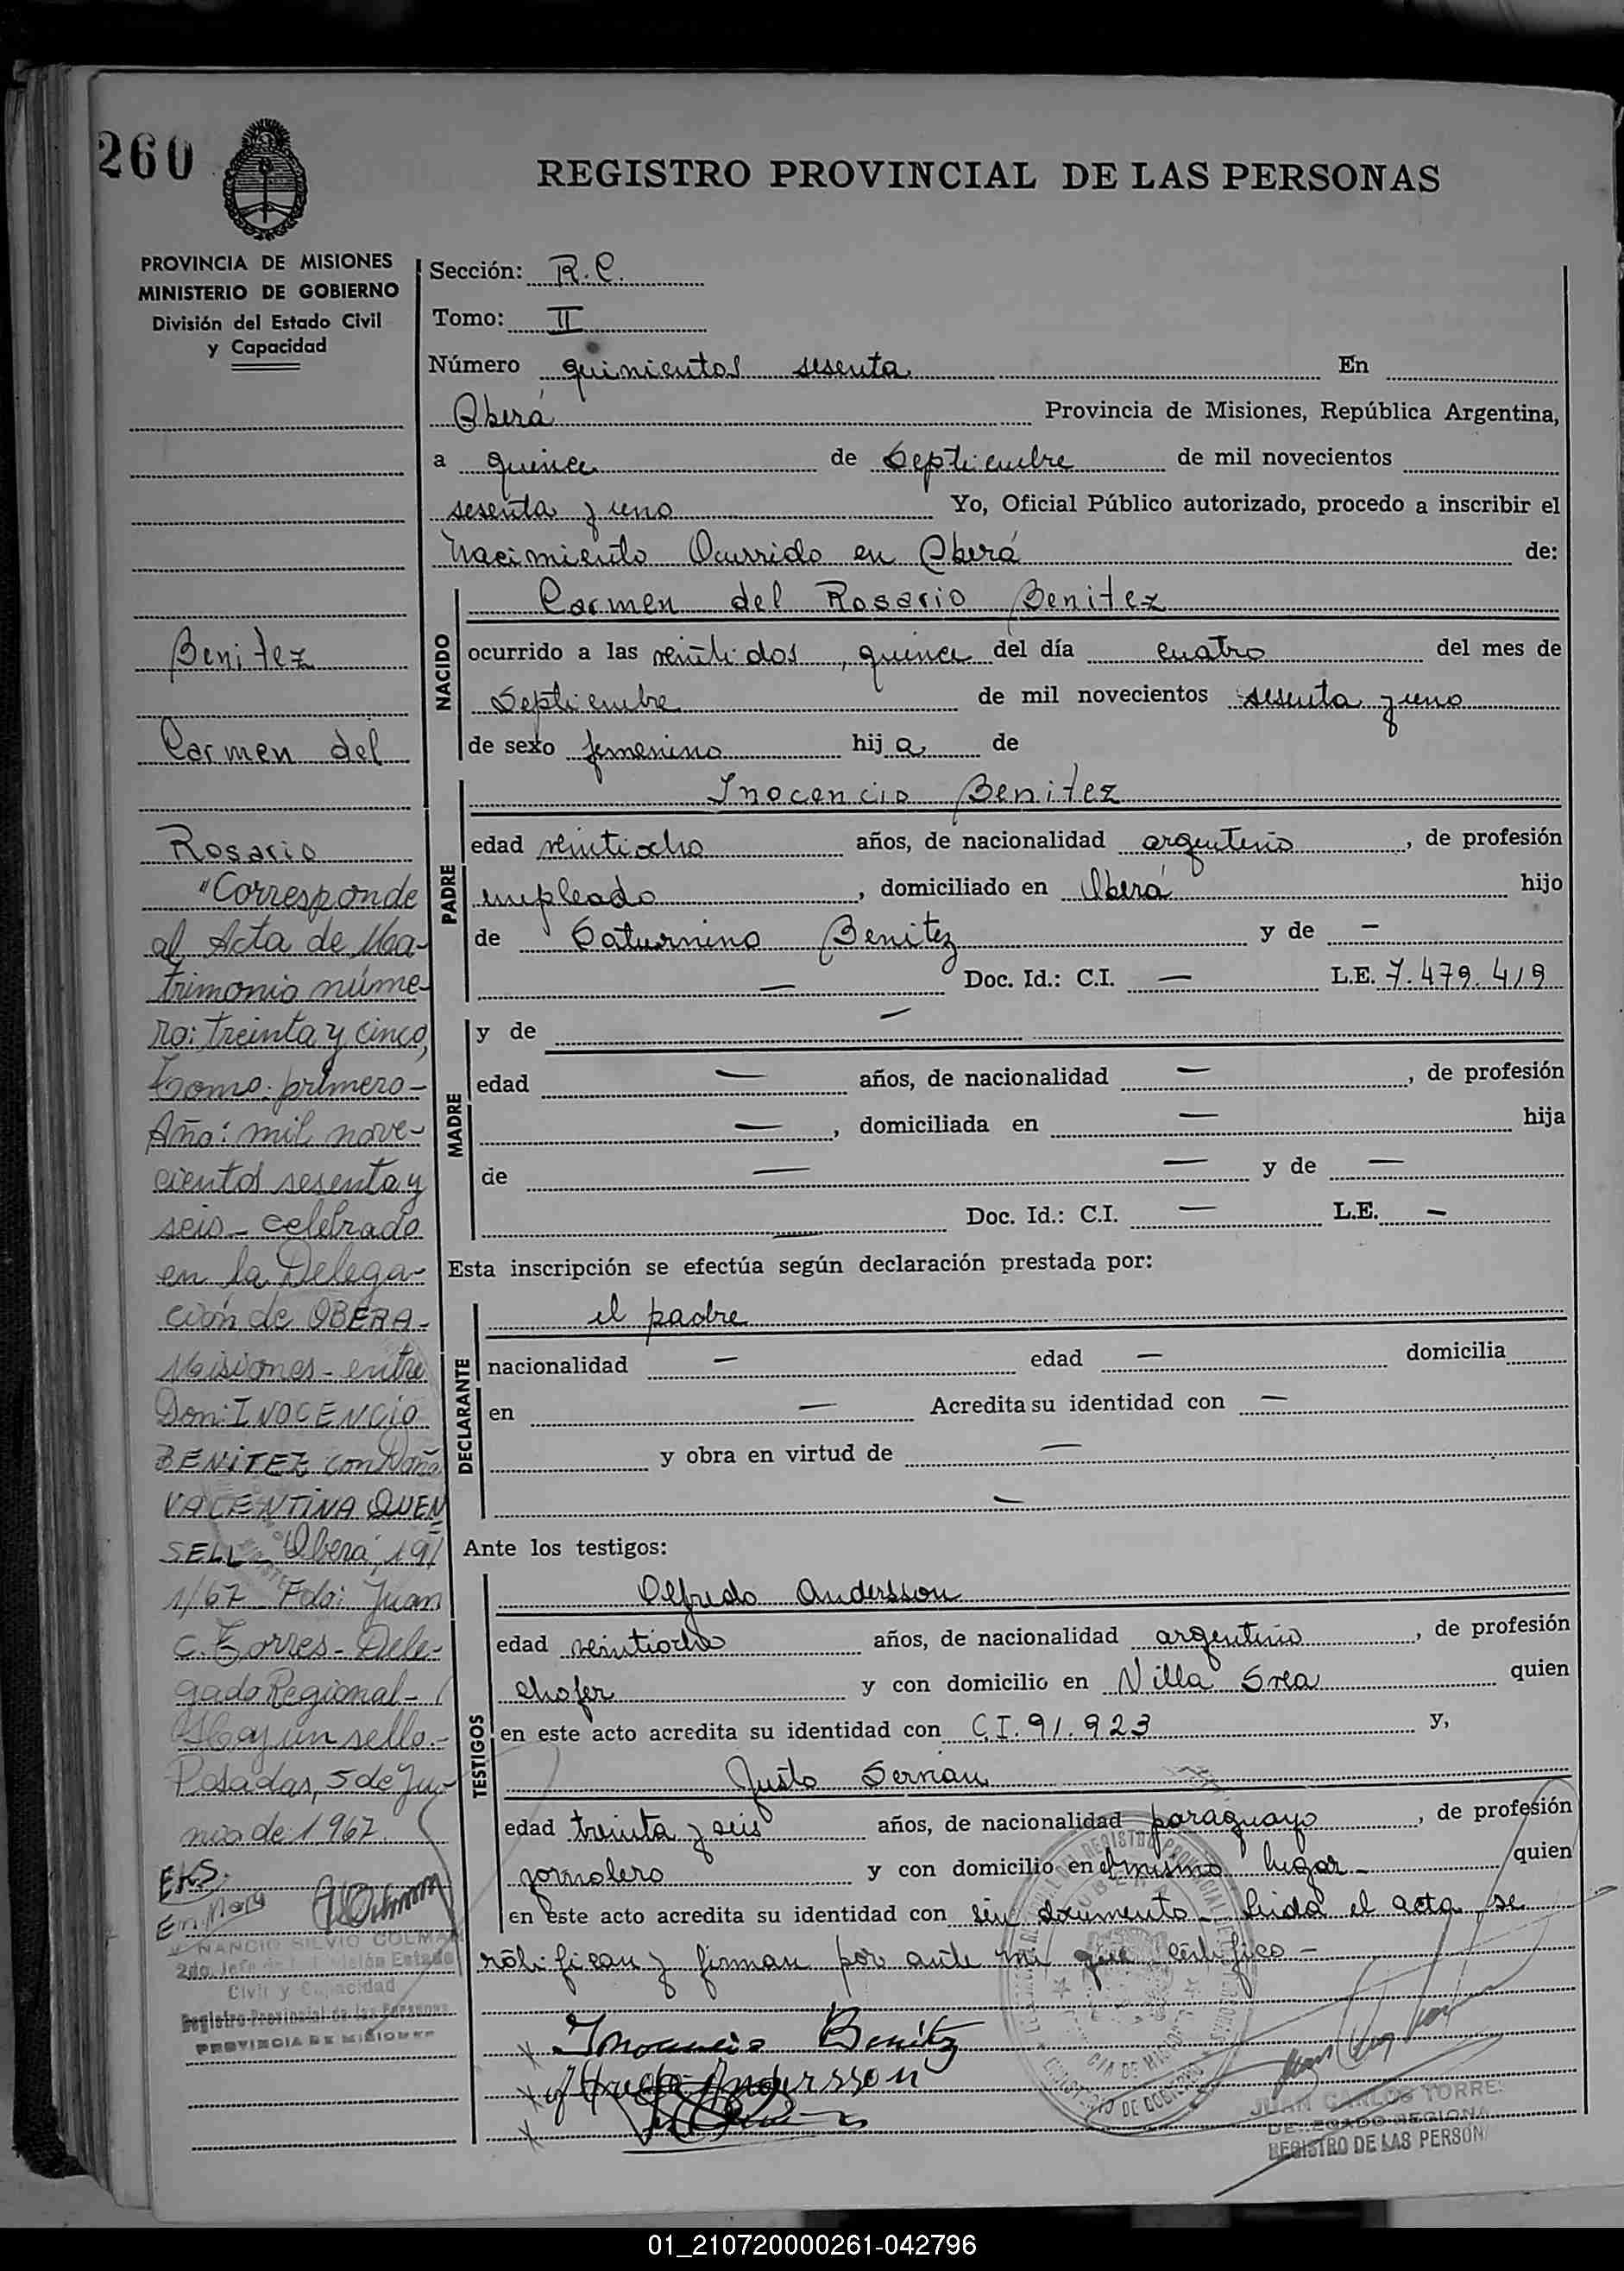 260
REGISTRO PROVINCIAL DE LAS PERSONAS
PROVINCIA DE MISIONES
MINISTERIO DE GOBIERNO
División del Estado Civil
y Capacidad
Benitez
Carmen del
Rosario
"Corresponde
al Acta de Ma-
trimonio núme-
ro: treinta y cinco,
Tomo: primero-
Año: mil nove-
cientos sesenta y
seis - celebrado
en la Delega-
ción de OBERA-
Misiones - entre
Don: INOCENCIO
BENITEZ con Doña
VALENTINA QUEN
SELL - Oberá, 19/
1/67 - Fdo: Juan
C. Torres - Dele-
gado Regional -
Hay un sello.-
Posadas, 5 de Ju-
nio de 1967.
EKS.
SILVIO COLMAN
2do. Jefe de División Estado
Civil y Capacidad
Registro Provincial de las Personas
PROVINCIA DE MISIONES
Sección: R.C.
Tomo: II
Número quinientos sesenta En
Oberá Provincia de Misiones, República Argentina,
a quince de Septiembre de mil novecientos
sesenta y uno Yo, Oficial Público autorizado, procedo a inscribir el
Nacimiento Ocurrido en Oberá de:
NACIDO
Carmen del Rosario Benitez
ocurrido a las veintidos, quince del día cuatro del mes de
Septiembre de mil novecientos sesenta y uno
de sexo femenino hij a de
PADRE
Inocencio Benitez
edad veintiocho años, de nacionalidad argentino, de profesión
empleado, domiciliado en Oberá hijo
de Saturnino Benitez y de —
— Doc. Id.: C.I. — L.E. 7.479.419
MADRE
y de —
edad — años, de nacionalidad —, de profesión
—, domiciliada en — hija
de — — y de —
Doc. Id.: C.I. — L.E. —
Esta inscripción se efectúa según declaración prestada por:
DECLARANTE
el padre
nacionalidad — edad — domicilia
en — Acredita su identidad con —
y obra en virtud de —
—
Ante los testigos:
TESTIGOS
Alfredo Andersson
edad veintiocho años, de nacionalidad argentino, de profesión
chofer y con domicilio en Villa Svea quien
en este acto acredita su identidad con C.I. 91.923 y,
Justo
edad treinta y seis años, de nacionalidad paraguayo, de profesión
jornalero y con domicilio en el mismo lugar - quien
en este acto acredita su identidad con sin documento - Leida el acta, se
ratifican y firman por ante mi que certifico -
Inocencio Benitez
Alfredo Andersson
JUAN CARLOS TORRES
DELEGADO REGIONAL
REGISTRO DE LAS PERSON
01_210720000261-042796